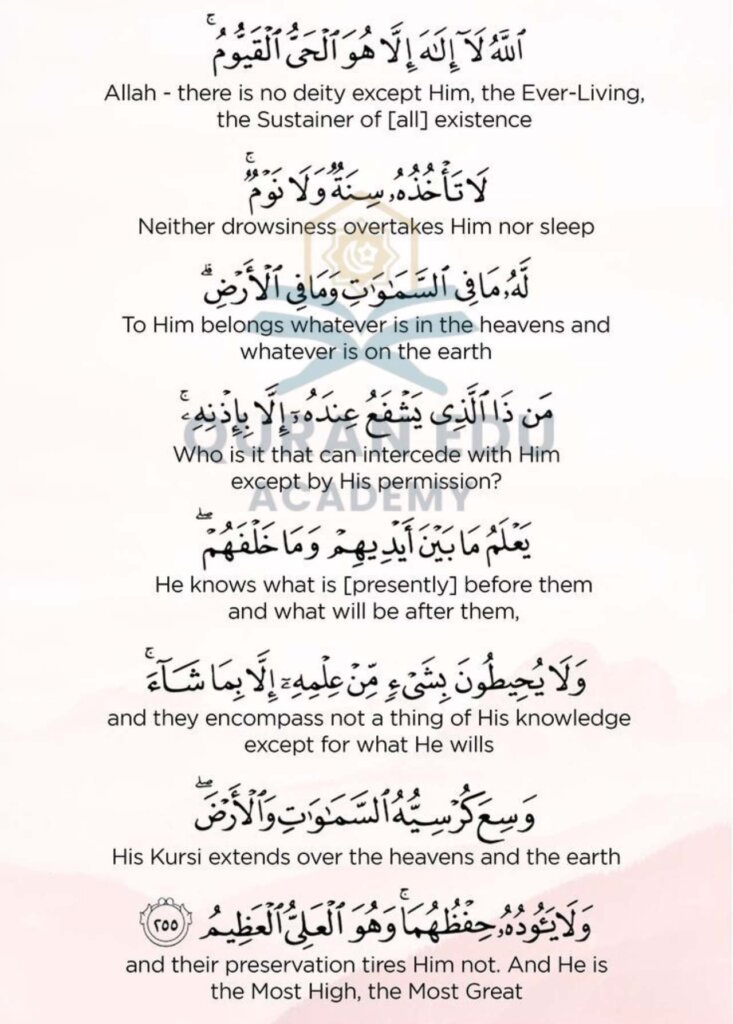 ٱللَّهُ لَآ إِلَـٰهَ إِلَّا هُوَ ٱلْحَىُّ ٱلْقَيُّومُ ۚ
Allah - there is no deity except Him, the Ever-Living,
the Sustainer of [all] existence
لَا تَأْخُذُهُۥ سِنَةٌ وَلَا نَوْمٌ ۚ
Neither drowsiness overtakes Him nor sleep
لَّهُۥ مَا فِى ٱلسَّمَـٰوَٰتِ وَمَا فِى ٱلْأَرْضِ ۗ
To Him belongs whatever is in the heavens and
whatever is on the earth
مَن ذَا ٱلَّذِى يَشْفَعُ عِندَهُۥٓ إِلَّا بِإِذْنِهِۦ ۚ
QURAN EDU
Who is it that can intercede with Him
except by His permission?
ACADEMY
يَعْلَمُ مَا بَيْنَ أَيْدِيهِمْ وَمَا خَلْفَهُمْ ۖ
He knows what is [presently] before them
and what will be after them,
وَلَا يُحِيطُونَ بِشَىْءٍ مِّنْ عِلْمِهِۦٓ إِلَّا بِمَا شَآءَ ۚ
and they encompass not a thing of His knowledge
except for what He wills
وَسِعَ كُرْسِيُّهُ ٱلسَّمَـٰوَٰتِ وَٱلْأَرْضَ ۖ
His Kursi extends over the heavens and the earth
وَلَا يَـُٔودُهُۥ حِفْظُهُمَا ۚ وَهُوَ ٱلْعَلِىُّ ٱلْعَظِيمُ ٢٥٥
and their preservation tires Him not. And He is
the Most High, the Most Great